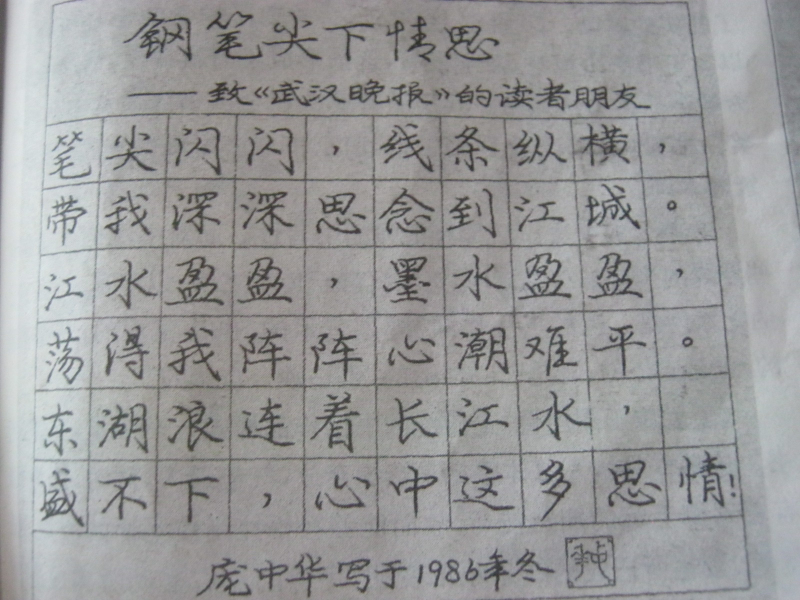 钢笔尖下情思
——致《武汉晚报》的读者朋友
笔尖闪闪，线条纵横，
带我深深思念到江城。
江水盈盈，墨水盈盈，
荡得我阵阵心潮难平。
东湖浪连着长江水，
盛不下，心中这多思情！
庞中华写于1986年冬